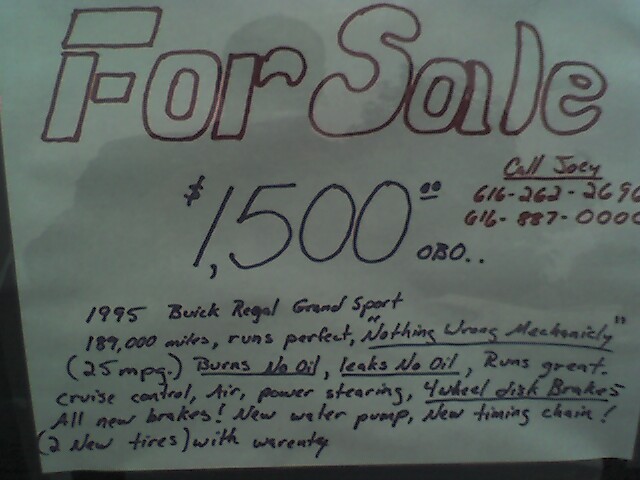 For Sale
$1,500.00 OBO..
Call Joey
616-262-2696
616-887-0000
1995 Buick Regal Grand Sport
189,000 miles, runs perfect, "Nothing Wrong Mechanicly"
(25 mpg.) Burns No Oil, leaks No Oil, Runs great.
cruise control, Air, power stearing, 4 wheel disk Brakes
All new brakes! New water pump, New timing chain!
(2 New tires) with warenty